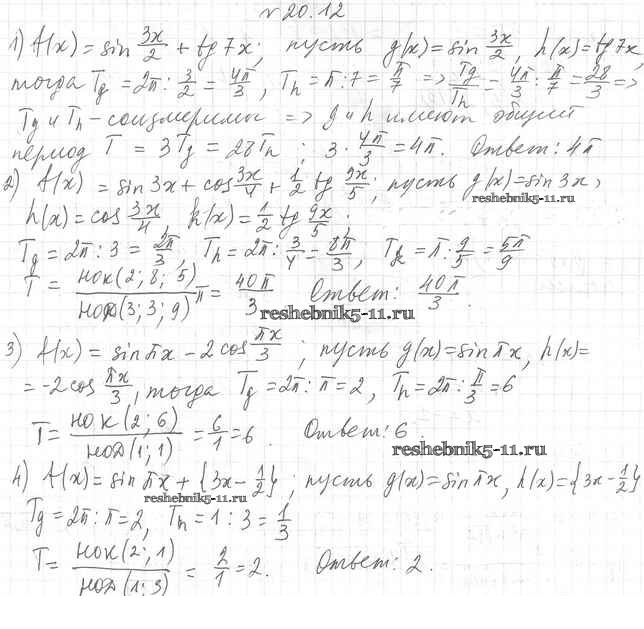 № 20.12
1) f(x) = sin 3x/2 + tg 7x; пусть g(x) = sin 3x/2, h(x) = tg 7x,
тогда Tg = 2π : 3/2 = 4π/3, Th = π : 7 = π/7 => Tg/Th = 4π/3 : π/7 = 28/3 =>
Tg и Th - соизмеримы => g и h имеют общий
период T = 3Tg = 28Th; 3 · 4π/3 = 4π. Ответ: 4π
2) f(x) = sin 3x + cos 3x/4 + 1/2 tg 9x/5; пусть g(x) = sin 3x,
reshebnik5-11.ru
h(x) = cos 3x/4 k(x) = 1/2 tg 9x/5;
Tg = 2π : 3 = 2π/3 Th = 2π : 3/4 = 8π/3, Tk = π : 9/5 = 5π/9
T = НОК(2; 8; 5)/НОД(3; 3; 9) π = 40π/3 Ответ: 40π/3.
reshebnik5-11.ru
3) f(x) = sin πx - 2 cos πx/3; пусть g(x) = sin πx, h(x) =
= -2 cos πx/3, тогда Tg = 2π : π = 2, Th = 2π : π/3 = 6
T = НОК(2; 6)/НОД(1; 1) = 6/1 = 6 Ответ: 6.
reshebnik5-11.ru
4) f(x) = sin πx + {3x - 1/2}; пусть g(x) = sin πx, h(x) = {3x - 1/2}
reshebnik5-11.ru
Tg = 2π : π = 2, Th = 1 : 3 = 1/3
T = НОК(2; 1)/НОД(1; 3) = 2/1 = 2. Ответ: 2.